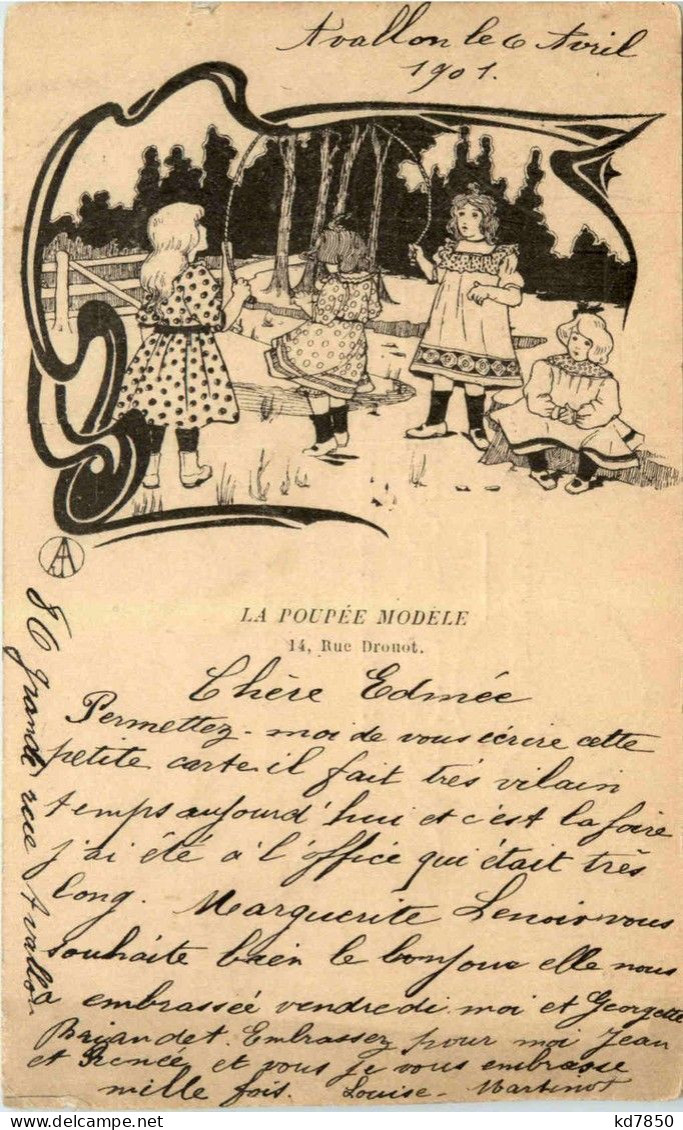 Avallon le 6 Avril
1901.
LA POUPÉE MODÈLE
14, Rue Drouot.
Chère Edmée
Permettez-moi de vous écrire cette
petite carte il fait très vilain
temps aujourd'hui et c'est la foire
j'ai été à l'office qui était très
long. Marguerite Lenoir vous
souhaite bien le bonjour elle nous
a embrassée vendredi moi et Georgette
Briandet. Embrassez pour moi Jean
et Renée et vous je vous embrasse
mille fois. Louise-Martinot
Grande rue Avallon
kd7850